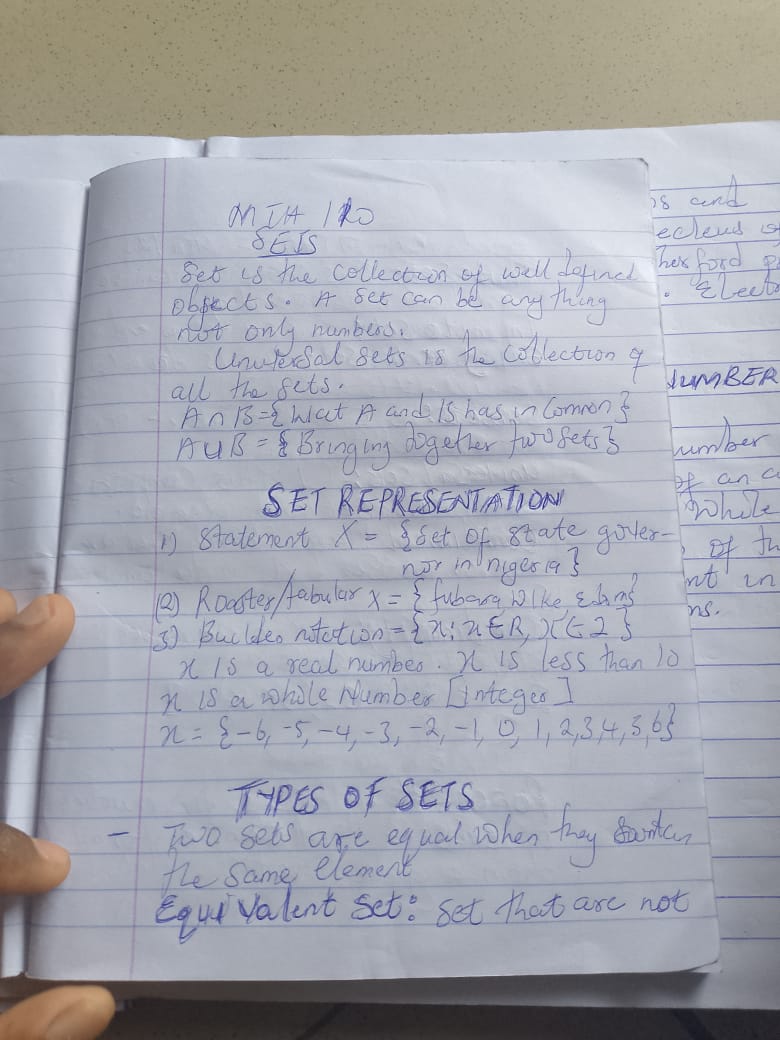 MTH 120
SETS
Set is the collection of well defined
objects. A set can be any thing
not only numbers.
Universal sets is the collection of
all the sets.
A∩B={What A and B has in Common}
A∪B = {Bringing together two sets}
SET REPRESENTATION
1) Statement X = {Set of state gover-
nor in nigeria}
(2) Roaster/tabular x = {fubara, Wike,
3) Builder notation = {x: x∈R, x∈Z}
x is a real number. x is less than 10
x is a whole Number [integer]
x = {-6, -5, -4, -3, -2, -1, 0, 1, 2,3,4,5,6}
TYPES OF SETS
- Two sets are equal when they
the same element
Equivalent Set: Set that are not
and
NUMBER
number
of an
whole
of
nt in
ns.